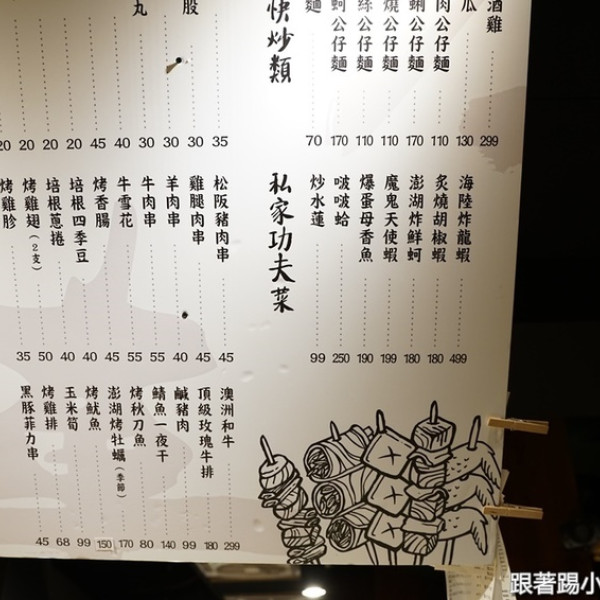 酒雞 299
瓜 130
肉公仔麵 110
蜊公仔麵 170
燒公仔麵 110
絲公仔麵 110
蚵公仔麵 170
麵 70
快炒類
35
股 30
30
丸 30
40
45
20
20
20
20
海陸炸龍蝦 499
炙燒胡椒蝦 180
澎湖炸鮮蚵 180
魔鬼天使蝦 199
爆蛋母香魚 190
啵啵蛤 250
炒水蓮 99
私家功夫菜
松阪豬肉串 45
雞腿肉串 45
羊肉串 40
牛肉串 55
牛雪花 55
烤香腸 45
培根四季豆 40
培根蔥捲 40
烤雞翅(2支) 50
烤雞胗 35
澳洲和牛 299
頂級玫瑰牛排 180
鹹豬肉 99
鯖魚一夜干 140
烤秋刀魚 80
澎湖烤牡蠣(季節) 170
烤魷魚 150
玉米筍 99
烤雞排 68
黑豚菲力串 45
跟著踢小